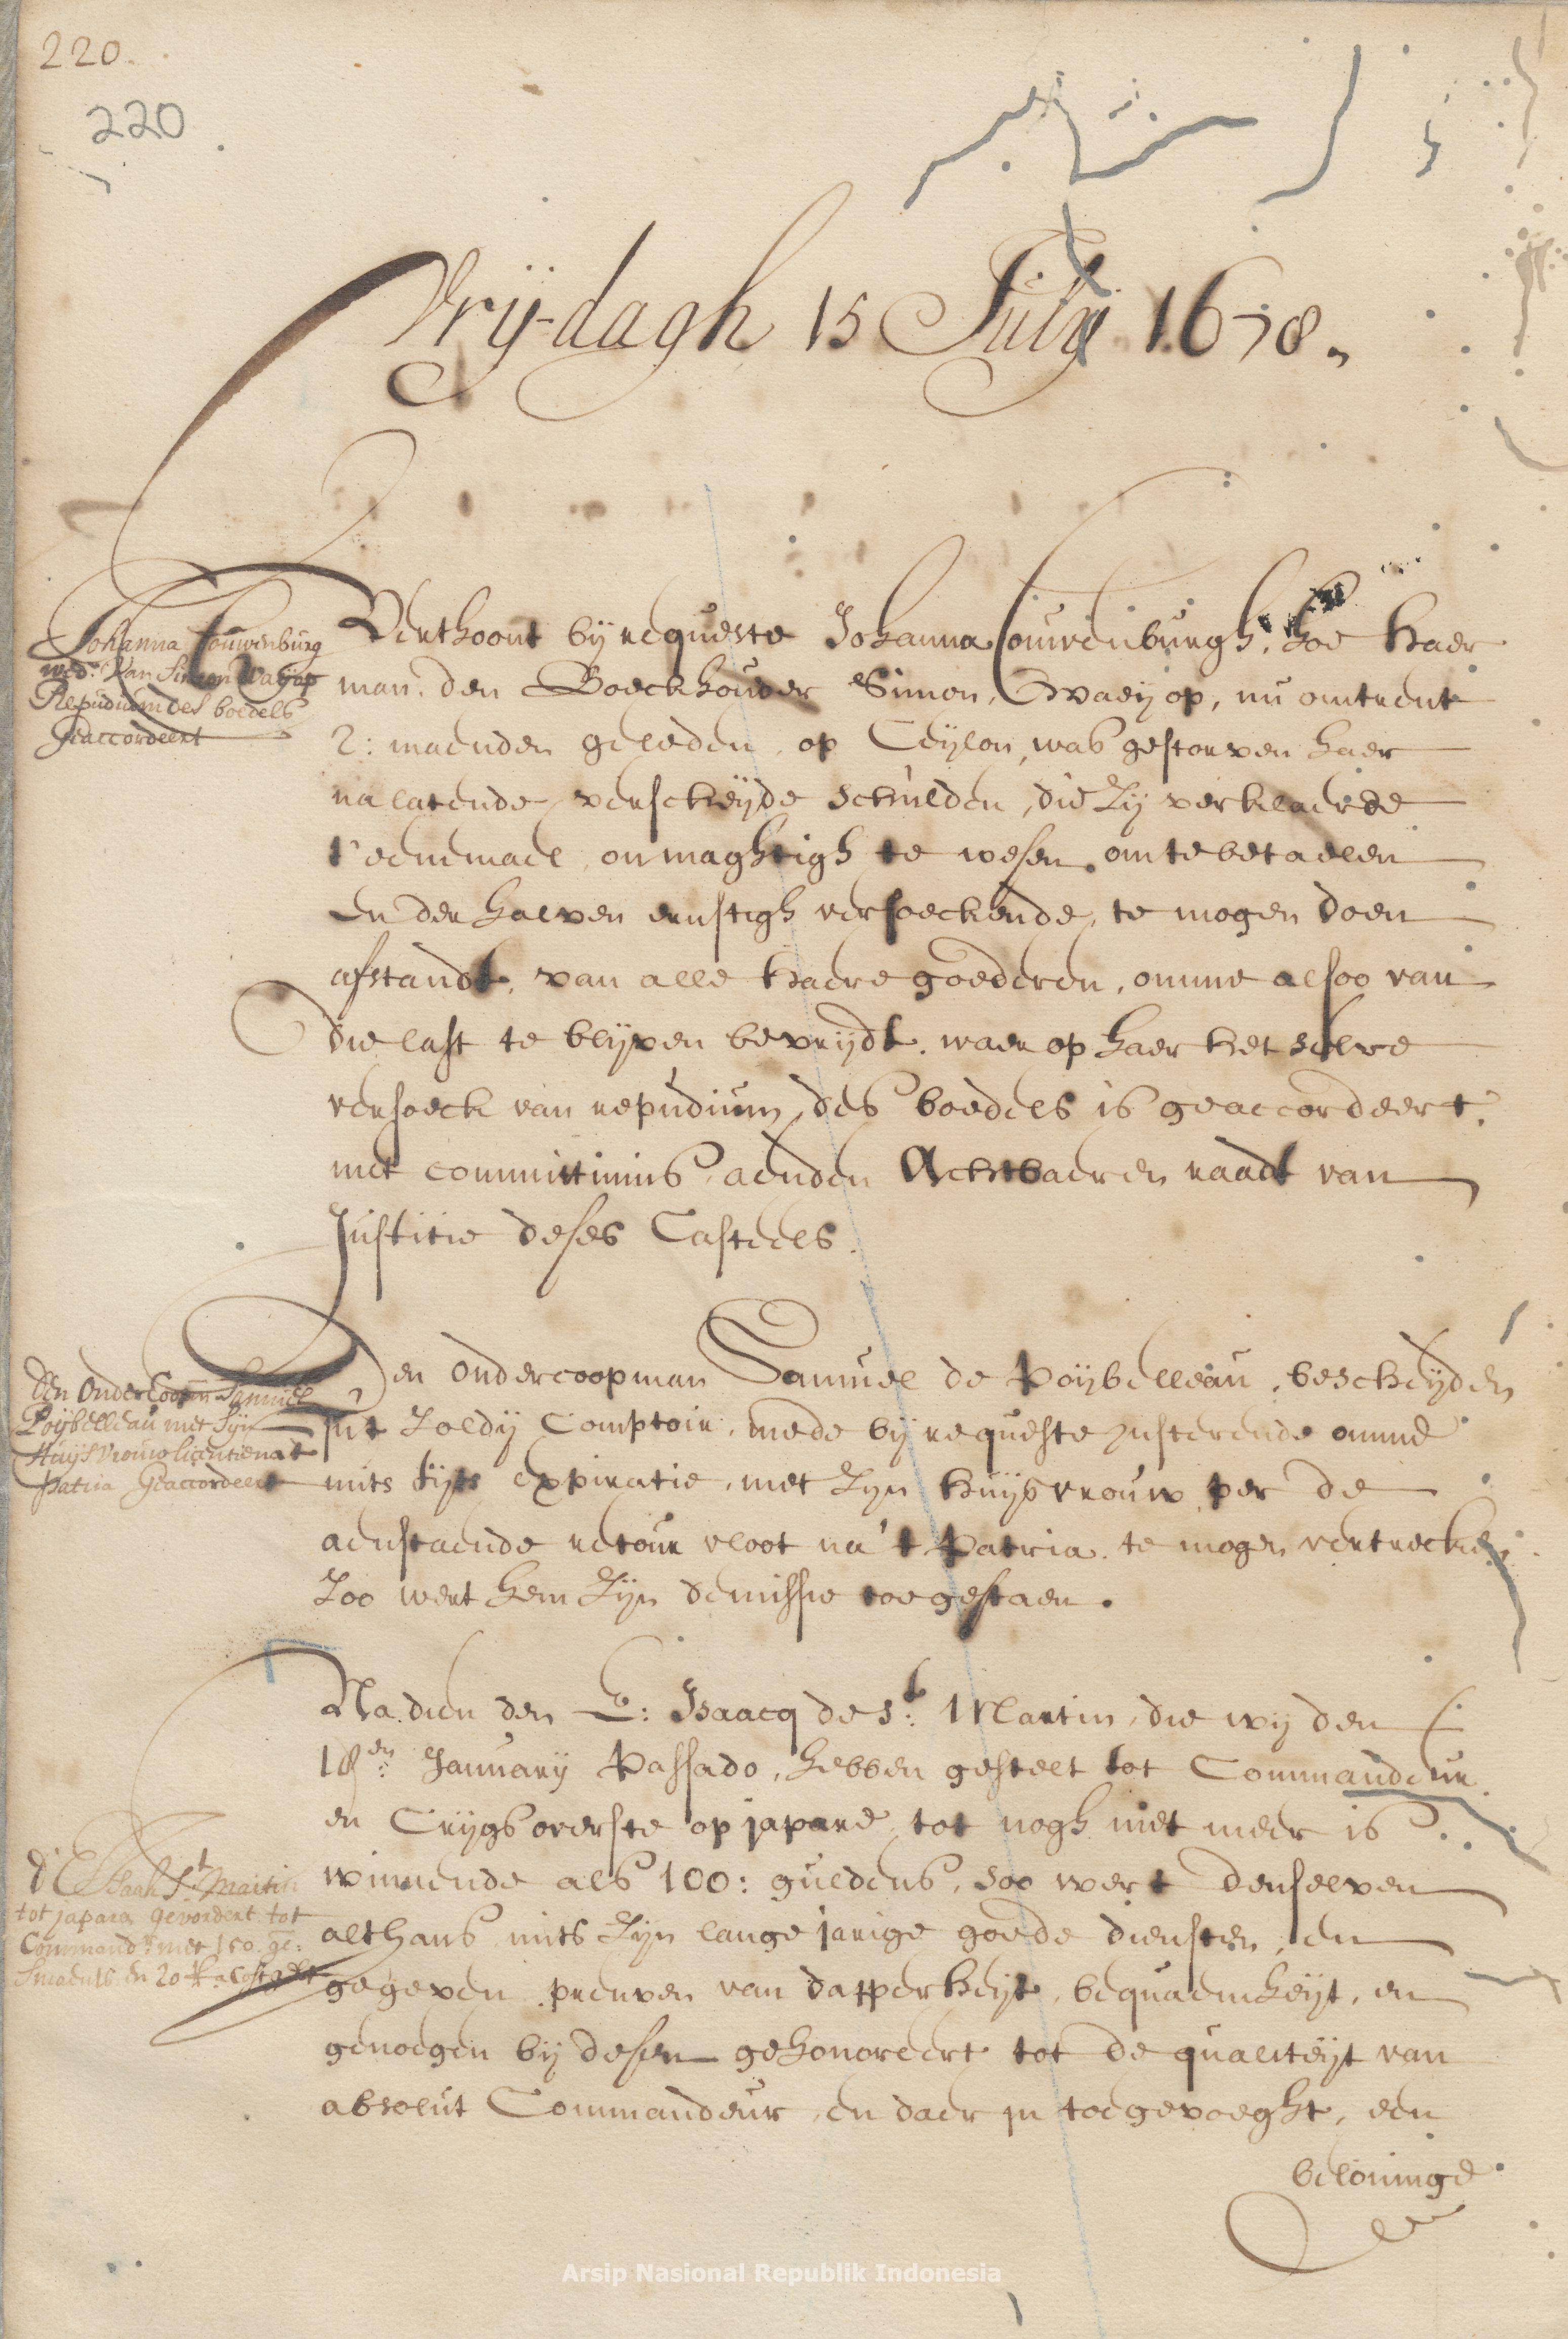 220.
220
Vrij-dagh 15 July 1678.
Johanna Couwenburg
wed.e van Simon Waeijop
Repudium des boedels
Geaccordeert
Verthoont bij requeste Johanna Couwenburgh, hoe haer
man, den Boeckhouder Simon, Waeijop, nu omtrent
2: maenden geleden, op Ceijlon, was gestorven haer
nalatende verscheijde schulden, die zij verklaerde
t'eenemael onmaghtigh te wesen om te betaelen
en derhalven ernstigh versoeckende, te mogen doen
afstandt, van alle haere goederen, omme alsoo van
die last te blijven bevrijdt. waer op haer het selve
versoeck van repudium, des boedels is geaccordeert,
met committimus, aenden Achtbaeren raadt van
Justitie deses Casteels.
den Ondercoopm Samuel
Poijbelleau met sijn
Huijsvrouw licentie nat
Patria Geaccordeert
Den ondercoopman Samuel de Poijbelleau, bescheijden
int Zoldij Comptoir, mede bij requeste insterende omme
mits tijts expiratie, met Zijn huijsvrouw per de
aenstaende retour vloot na't Patria te mogen vertrecken
Zoo wert hem Zijn demissie toegestaen.
Na dien den E: Isaacq de s.t Martin, die wij den
18en: January Passado, hebben gestelt tot Commandeur
en Crijgsoverste op japare, tot nogh niet meer is
winnende als 100: guldens, soo wert denselven
althans mits Zijn lange jarige goede diensten, en
gegeven preuven van dapperheijt, bequaemheijt, en
genoegen bij desen gehonoreert tot de qualiteijt van
absolut Commandeur, en daer in toegevoeght, een
d'E Isaak S.t Martin
tot japara gevordert tot
Command.r met 150. ge:
Smaents en 20 Ra costgelt
beloninge
Arsip Nasional Republik Indonesia